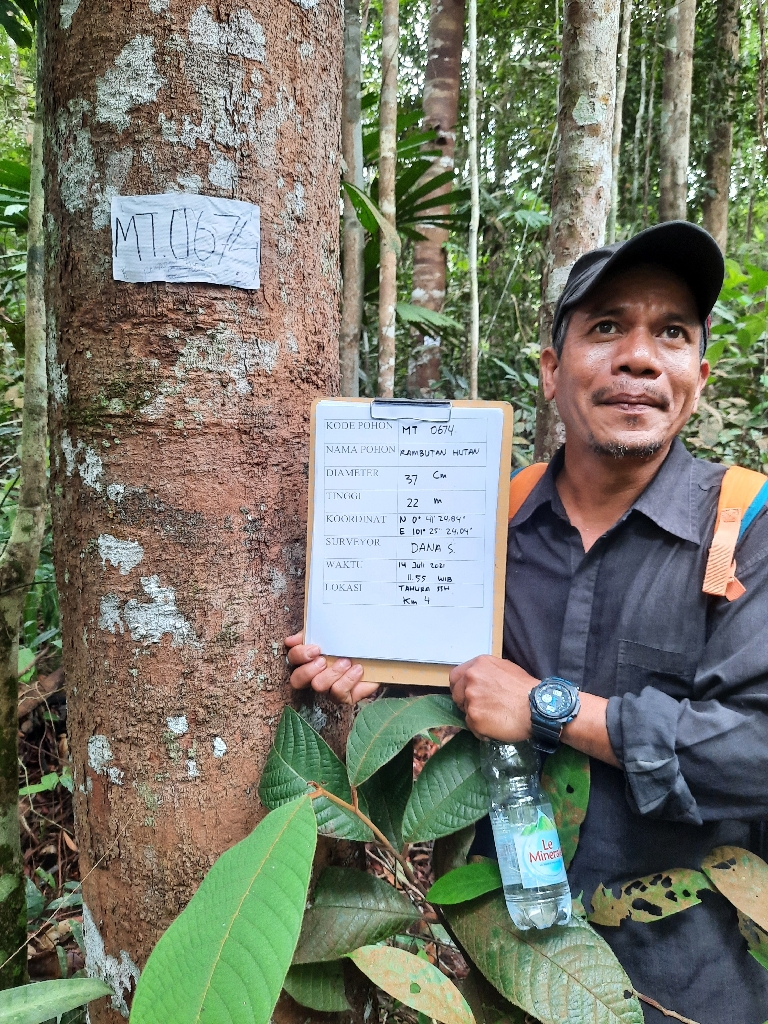 MT.0674
KODE POHON MT 0674
NAMA POHON RAMBUTAN HUTAN
DIAMETER 37 Cm
TINGGI 22 m
KOORDINAT N 0° 41' 20.84"
E 101° 25' 24.04"
SURVEYOR DANA S.
WAKTU 14 Juli 2021
11.55 WIB
LOKASI TAHURA SSH
Km 4
Le
Minerale